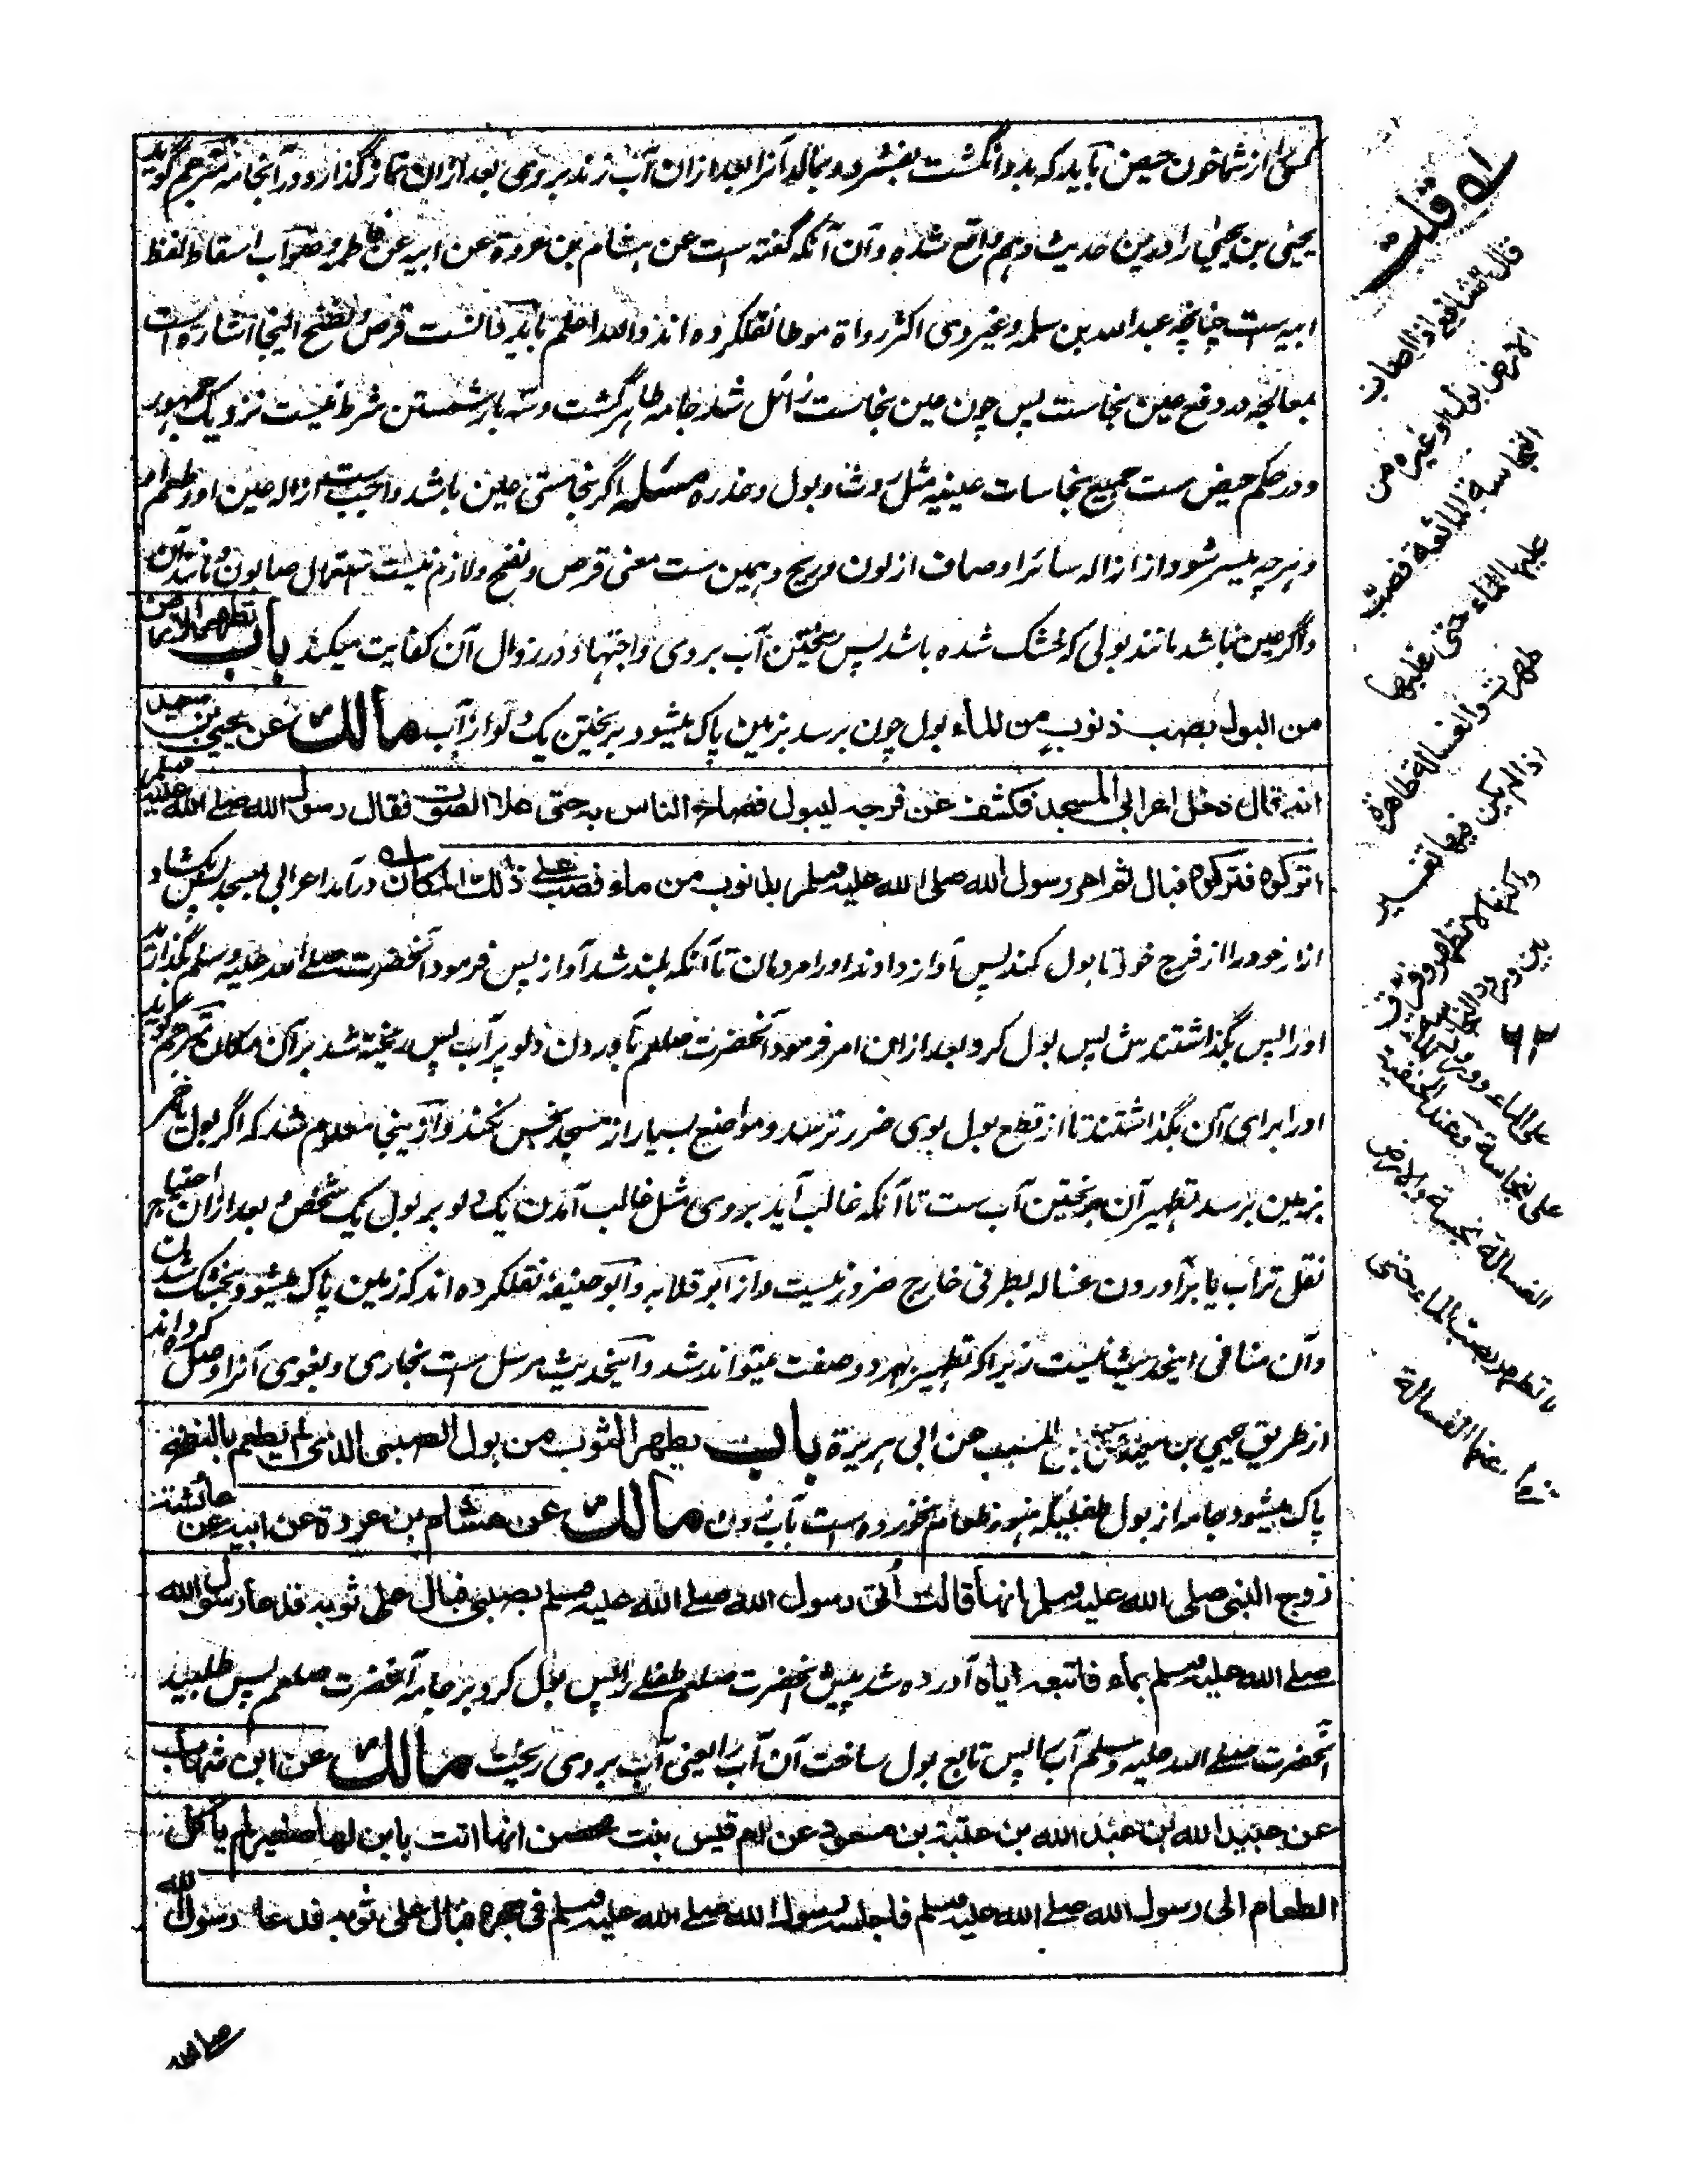 کسی از شما خون حیض باید که بدو انگشت بفشرد و بمالد آنرا بعد ازان آب زند بروی بعد ازان نماز گذارد در آنجامه مترجم گوید
یحیی بن یحیی را درین حدیث وهم واقع شده و آن آنکه گفته است عن هشام بن عروة عن ابیه عن فاطمه و صواب اسقاط لفظ
ابیه ست چنانچه عبدالله بن سلمه و غیر وی اکثر رواة موطا نقلکرده اند والله اعلم باید دانست قرص و نضح اینجا اشارت است
بمعالجه در دفع عین نجاست پس چون عین نجاست زائل شد جامه طاهر گشت و سه بار شستن شرط نیست نزدیک جمهور
و در حکم حیض ست جمیع نجاسات عینیه مثل روث و بول و عذره مسئله اگر نجاستی عین باشد واجب ست ازاله عین او و طعم او
و هرچه میسر شود از ازاله سائر اوصاف از لون و ریح و همین ست معنی قرص و نضح و لازم نیست استعمال صابون و مانند آن
و اگر عین نباشد مانند بولی که خشک شده باشد پس ریختن آب بروی و اجتهاد در زوال آن کفایت میکند باب تطهیر الارض
من البول بصب ذنوب من الماء بول چون برسد بزمین پاک میشود بریختن یک دلو از آب مالك عن یحیی بن سعید
انه قال دخل اعرابی المسجد فکشف عن فرجه لیبول فصاح الناس به حتی علا الصوت فقال رسول الله صلی الله علیه وسلم
اترکوه فترکوه فبال ثم امر رسول الله صلی الله علیه وسلم بذنوب من ماء فصب علی ذلك المکان در آمد اعرابی بمسجد پس بکشاد
ازار خود را از فرج خود تا بول کند پس آواز دادند او را مردمان تا آنکه بلند شد آواز پس فرمود آنحضرت صلی الله علیه وسلم بگذارید
او را پس بگذاشتندش پس بول کرد بعد ازان امر فرمود آنحضرت صلعم بآوردن دلو پر آب پس ریخته شد بر آن مکان مترجم گوید
او را برای آن بگذاشتند تا از قطع بول بوی ضرر نرسد و مواضع بسیار از مسجد نجس نکند و ازینجا معلوم شد که اگر بول یا خمر
بزمین برسد تطهیر آن بریختن آب ست تا آنکه غالب آید بروی مثل غالب آمدن یک دلو بر بول یک شخص و بعد ازان احتیاج
نقل تراب یا برآوردن غساله بطرفی خارج ضرور نیست و از ابو قلابه و ابو حنیفه نقلکرده اند که زمین پاک میشود بخشک شدن
و آن منافی اینحدیث نیست زیراکه تطهیر بهر دو صفت میتواند شد و اینحدیث مرسل ست بخاری و بغوی آنرا وصل کرده اند
از طریق یحیی بن سعید عن المسیب عن ابی هریرة باب یطهر الثوب من بول الصبی الذی لم یطعم بالنضح
پاک میشود جامه از بول طفلیکه هنوز طعام نخورده است بآب زدن مالك عن هشام بن عروة عن ابیه عن عائشة
زوج النبی صلی الله علیه وسلم انها قالت اتی رسول الله صلی الله علیه وسلم بصبی فبال علی ثوبه فدعا رسول الله
صلی الله علیه وسلم بماء فاتبعه ایاه آورده شد پیش آنحضرت صلعم طفلی را پس بول کرد بر جامه آنحضرت صلعم پس طلبید
آنحضرت صلی الله علیه وسلم آب را پس تابع بول ساخت آن آب را یعنی آب بروی ریخت مالك عن ابن شهاب
عن عبید الله بن عبد الله بن عتبة بن مسعود عن ام قیس بنت محصن انها اتت بابن لها صغیر لم یاکل
الطعام الی رسول الله صلی الله علیه وسلم فاجلسه رسول الله صلی الله علیه وسلم فی حجره فبال علی ثوبه فدعا رسول الله
قلت
قال الشافعی اذا اصاب
الارض بول او غیره من
النجاسة المائعة فصب
علیها الماء حتی غلبها
طهرت والغسالة طاهرة
اذا لم یکن فیها تغیر
ولکنها لا تطهر وفرق
بین ورود النجاسة
علی الماء وورود الماء
علی نجاسة وعند الحنفیة
الغسالة نجسة والارض
لا تطهر بصب الماء حتی
عنها الغسالة
٦٢